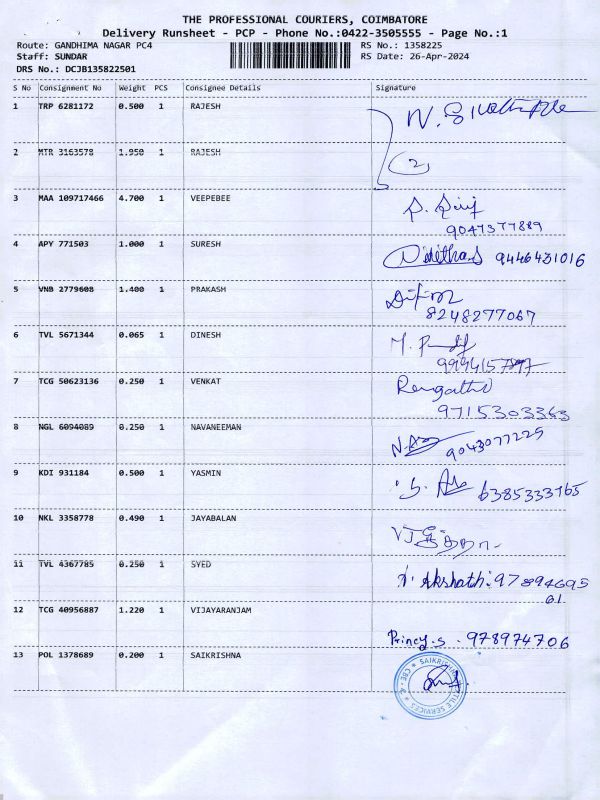 THE PROFESSIONAL COURIERS, COIMBATORE
Delivery Runsheet - PCP - Phone No.:0422-3505555 - Page No.:1
Route: GANDHIMA NAGAR PC4 RS No.: 1358225
Staff: SUNDAR RS Date: 26-Apr-2024
DRS No.: DCJB135822501
S No Consignment No Weight PCS Consignee Details Signature
1 TRP 6281172 0.500 1 RAJESH
2 MTR 3163578 1.950 1 RAJESH (2)
3 MAA 109717466 4.700 1 VEEPEBEE
9047377889
4 APY 771503 1.000 1 SURESH 9446431016
5 VNB 2779608 1.400 1 PRAKASH
8248277067
6 TVL 5671344 0.065 1 DINESH
7 TCG 50623136 0.250 1 VENKAT
9715303363
8 NGL 6094089 0.250 1 NAVANEEMAN
9043077225
9 KDI 931184 0.500 1 YASMIN
6385333765
10 NKL 3358778 0.490 1 JAYABALAN
11 TVL 4367785 0.250 1 SYED
Akshath 97894695
61
12 TCG 40956887 1.220 1 VIJAYARANJAM
Princy.s. 978974706
13 POL 1378689 0.200 1 SAIKRISHNA